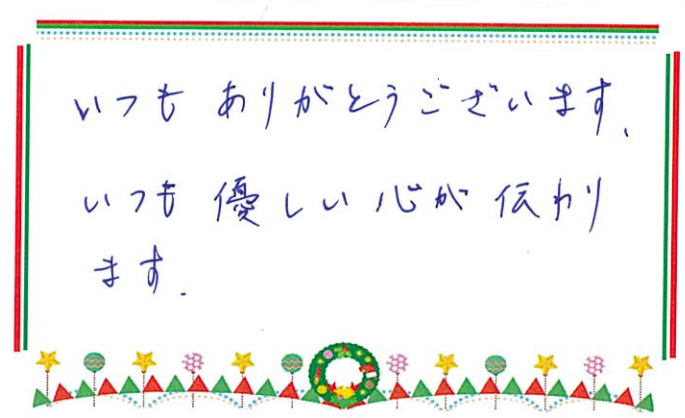 いつも ありがとうございます.
いつも 優しい心が 伝わり
ます.